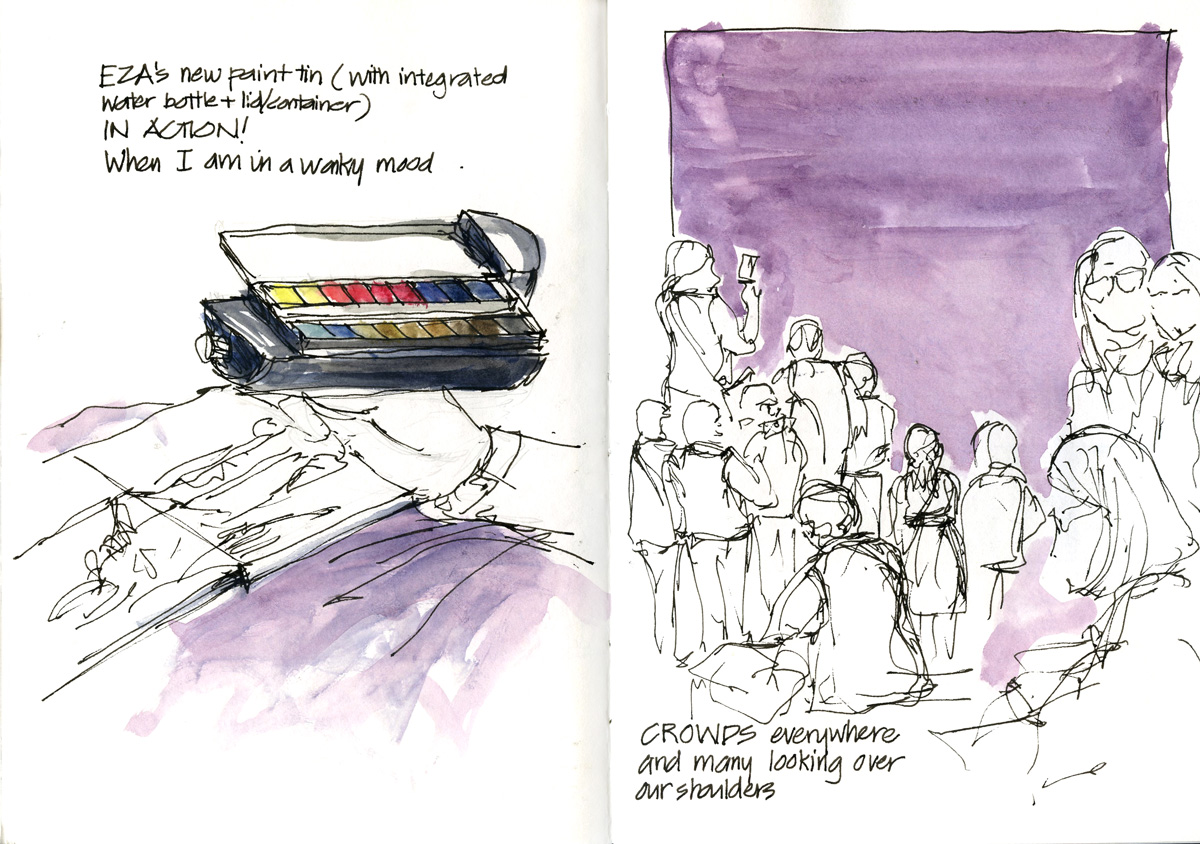 EZA's new paint tin (with integrated
water bottle + lid/container)
IN ACTION!
When I am in a wonky mood .
CROWDS everywhere
and many looking over
our shoulders